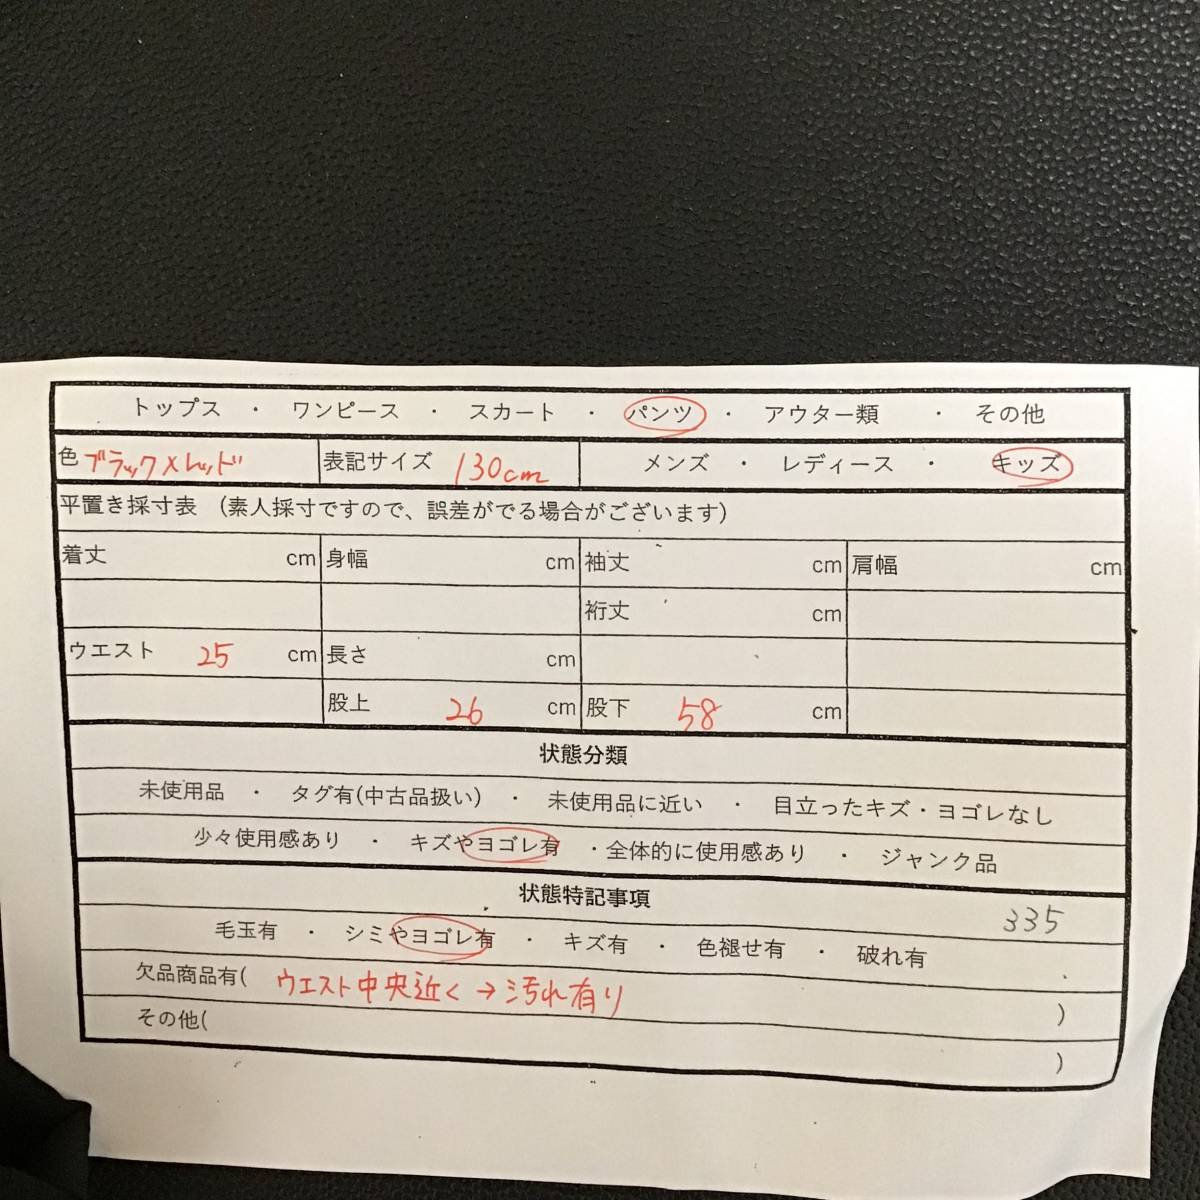 トップス ・ ワンピース ・ スカート ・ パンツ ・ アウター類 ・ その他
色 ブラック×レッド 表記サイズ 130cm メンズ ・ レディース ・ キッズ
平置き採寸表 (素人採寸ですので、誤差がでる場合がございます)
着丈 cm 身幅 cm 袖丈 cm 肩幅 cm
裄丈 cm
ウエスト 25 cm 長さ cm
股上 26 cm 股下 58 cm
状態分類
未使用品 ・ タグ有(中古品扱い) ・ 未使用品に近い ・ 目立ったキズ・ヨゴレなし
少々使用感あり ・ キズやヨゴレ有 ・全体的に使用感あり ・ ジャンク品
状態特記事項
335
毛玉有 ・ シミやヨゴレ有 ・ キズ有 ・ 色褪せ有 ・ 破れ有
欠品商品有( ウエスト中央近く→汚れ有り )
その他( )